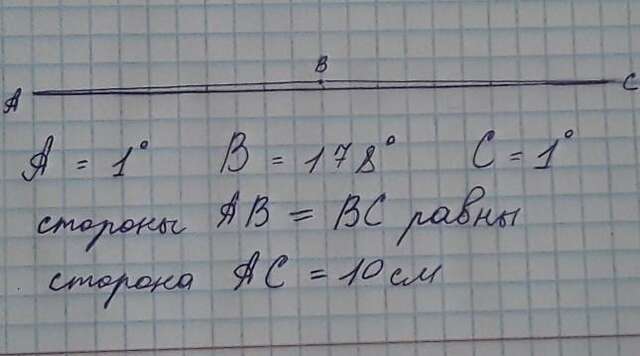 B
A C
A = 1° B = 178° C = 1°
стороны AB = BC равны
сторона AC = 10 см